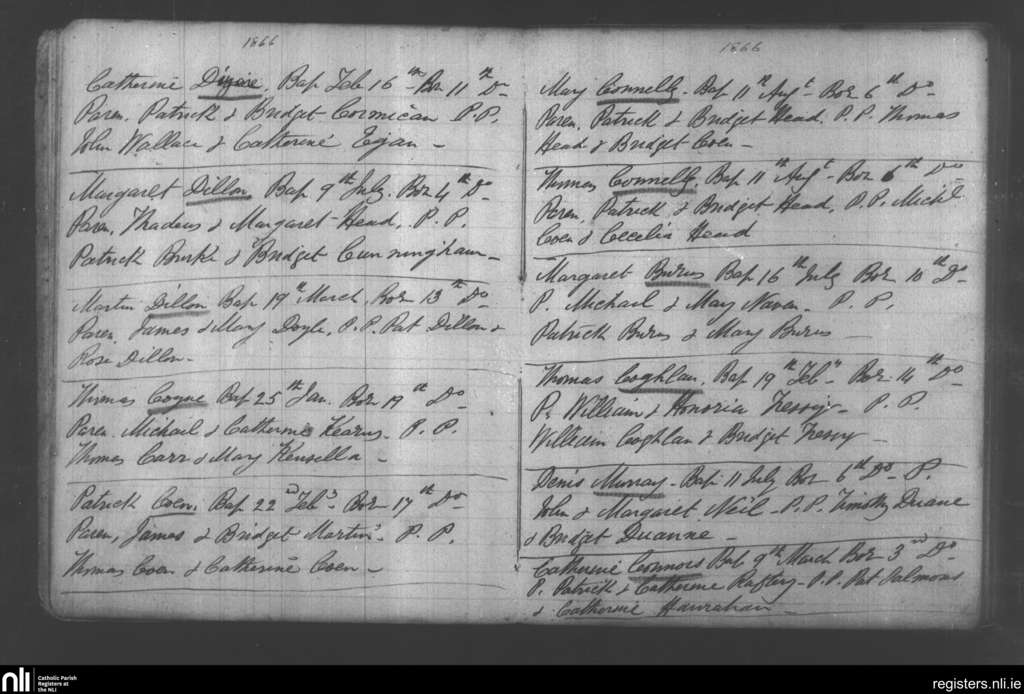 1866
Catherine Bap Feb 16th Bor 11th Do
Paren. Patrick & Bridget Cormican P.P.
John Wallace & Catherine Egan
Margaret Dillon Bap 9th July. Bor 4th Do
Paren, Thadeus & Margaret Head, P.P.
Patrick Burke & Bridget Cunningham
Martin Dillon Bap 19th March, Bor 13th Do
Paren, James & Mary Doyle, P.P. Pat Dillon &
Rose Dillon
Thomas Coyne Bap 25th Jan. Bor 19th Do
Paren. Michael & Catherine Kearns P.P.
Thomas Carr & Mary Kensella
Patrick Coen, Bap 22nd Feb Bor 17th Do
Paren, James & Bridget Martin P.P.
Thomas Coen & Catherine Coen
1866
Mary Connelly. Bap 11th Augt Bor 6th Do
Paren. Patrick & Bridget Head, P.P. Thomas
Head & Bridget Coen
Thomas Connelly. Bap 11th Augt Bor 6th Do
Paren, Patrick & Bridget Head, P.P. Michl
Coen & Cecilia Head
Margaret Burns Bap 16th July Bor 10th Do
P. Michael & Mary P.P.
Patrick Burns & Mary Burns
Thomas Coghlan, Bap 19th Feb Bor 14th Do
Pr William & Honoria P.P.
William Coghlan & Bridget
Denis Murray Bap 11 July Bor 6th Do P.
John & Margaret Neil P.P. Timothy Duane
& Bridget Duanne
Catherine Connors Bap 9th March Bor 3rd Do
P. Patrick & Catherine Raftery P.P. Pat Salmons
& Catherine Hanrahan
nli Catholic Parish
Registers at
the NLI
registers.nli.ie